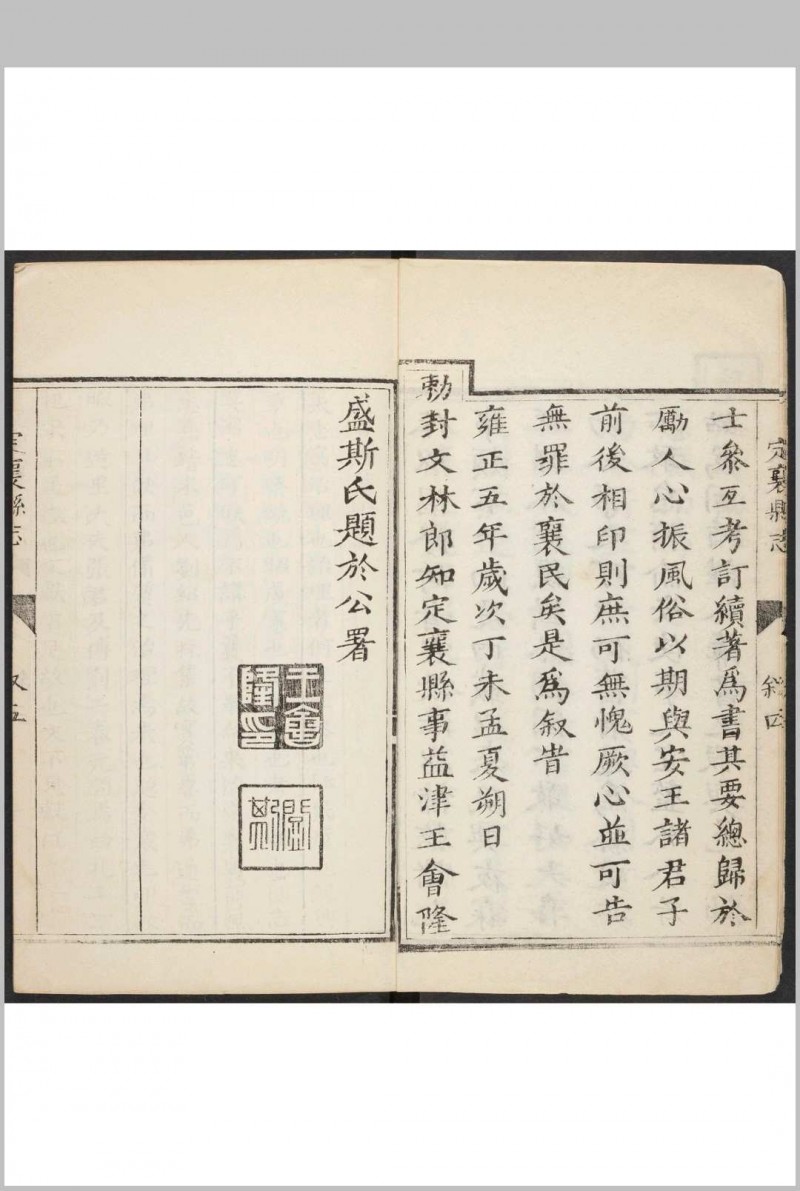 定襄縣志
叙四
士參互考訂續著爲書其要總歸於
勵人心振風俗以期與安王諸君子
前後相印則庶可無愧厥心並可告
無罪於襄民矣是爲叙旹
雍正五年歲次丁未孟夏朔日
勅封文林郎知定襄縣事益津王會隆
盛斯氏題於公署
王會隆印
定襄縣志
叙五